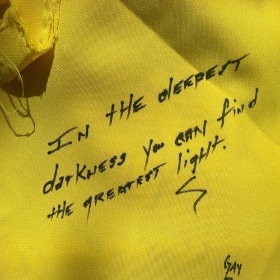 IN tHE dEEPEST
darkNESS you CAN find
the gREATEST light.
GAY